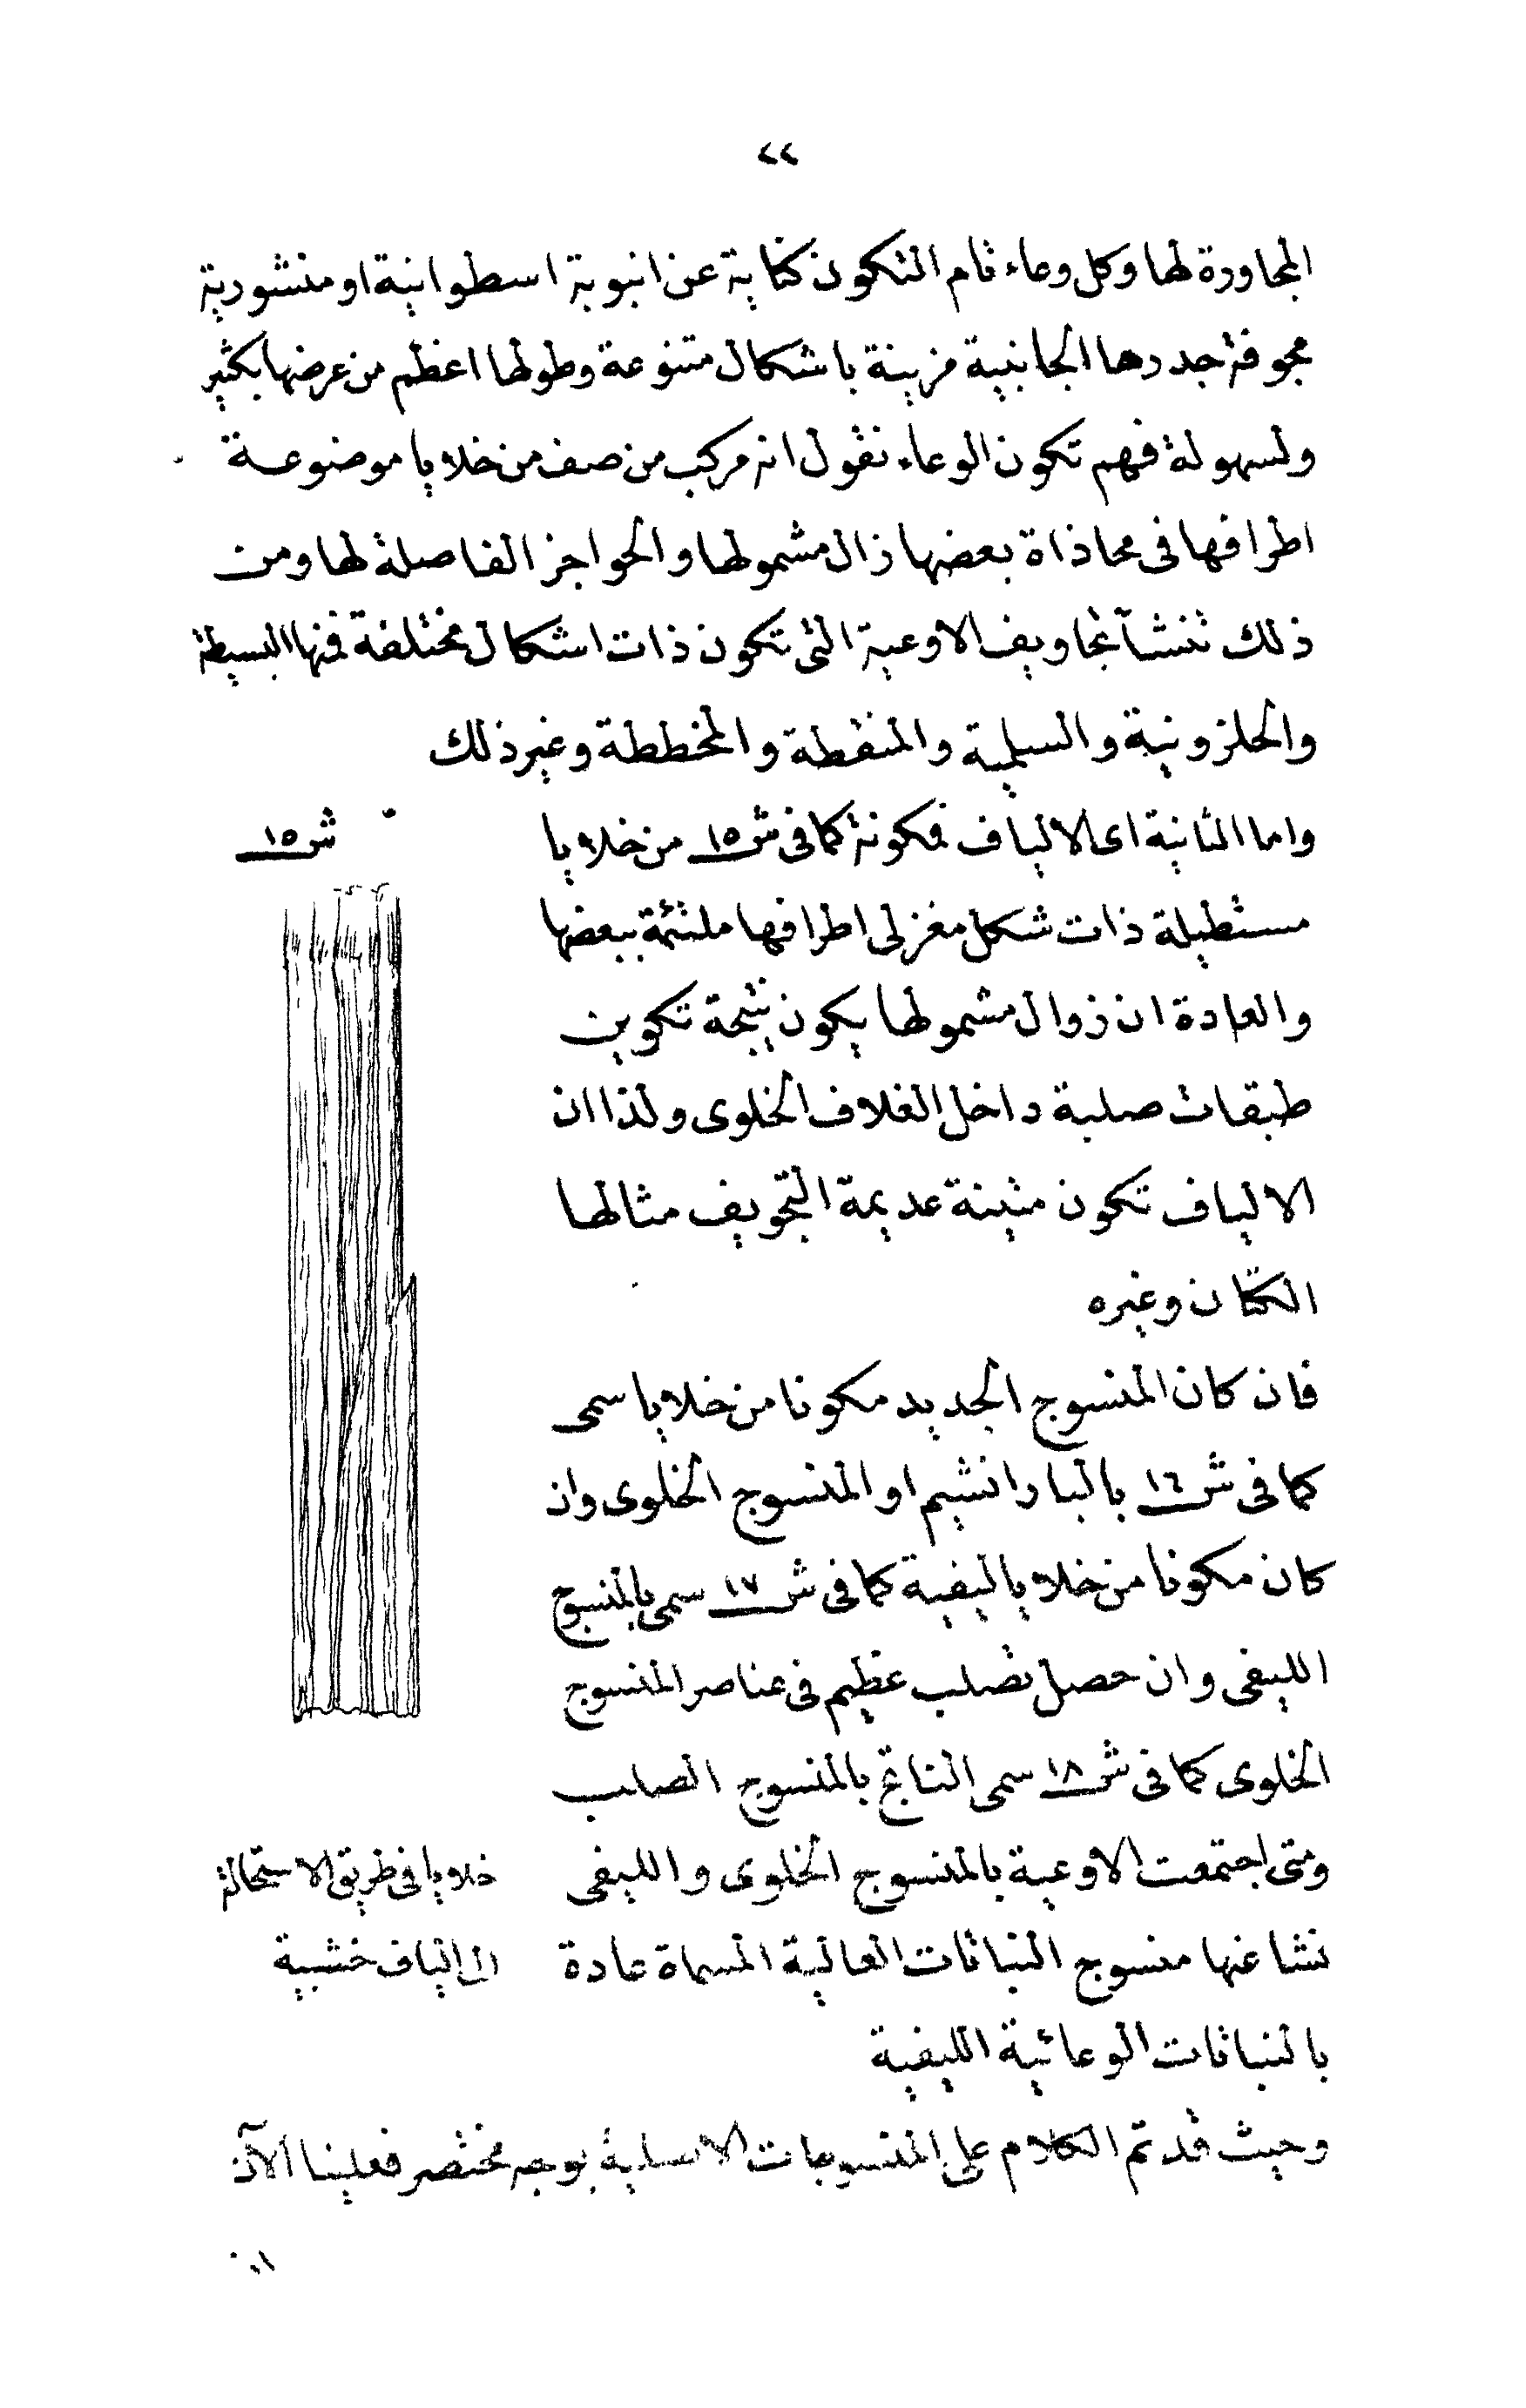 ٢٢
المجاورة لها وكل وعاء تام التكون كناية عن انبوبة اسطوانية او منشورية
مجوفة جدرها الجانبية مزينة باشكال متنوعة وطولها اعظم من عرضها بكثير
ولسهولة فهم تكون الوعاء نقول انه مركب من صف من خلايا موضوعة
اطرافها فى محاذاة بعضها زال مشمولها والحواجز الفاصلة لها ومن
ذلك تنشآ تجاويف الاوعية التى تكون ذات اشكال مختلفة فمنها البسيطة
والحلزونية والسلمية والمنقطة والمخططة وغير ذلك
واما الثانية اى الالياف فمكونة كما فى ش ١٥ من خلايا
مستطيلة ذات شكل مغزلى اطرافها ملتئمة ببعضها
والعادة ان زوال مشمولها يكون نتيجة تكوين
طبقات صلبة داخل الغلاف الخلوى ولذا ان
الالياف تكون متينة عديمة التجويف مثالها
الكتان وغيره
فان كان المنسوج الجديد مكونا من خلايا سمى
كما فى ش ١٦ بالبارانشيم او المنسوج الخلوى وان
كان مكونا من خلايا ليفية كما فى ش ١٧ سمى بالمنسوج
الليفى وان حصل تصلب عظيم فى عناصر المنسوج
الخلوى كما فى ش ١٨ سمى الناتج بالمنسوج الصلب
ومتى اجتمعت الاوعية بالمنسوج الخلوى والليفى
نشا عنها منسوج النباتات العالية المسماة عادة
بالنباتات الوعائية الليفية
وحيث قد تم الكلام على المنسوجات الاصلية بوجه مختصر فعلينا الآن
ش ١٥
خلايا فى طريق الاستحالة
الى الياف خشبية